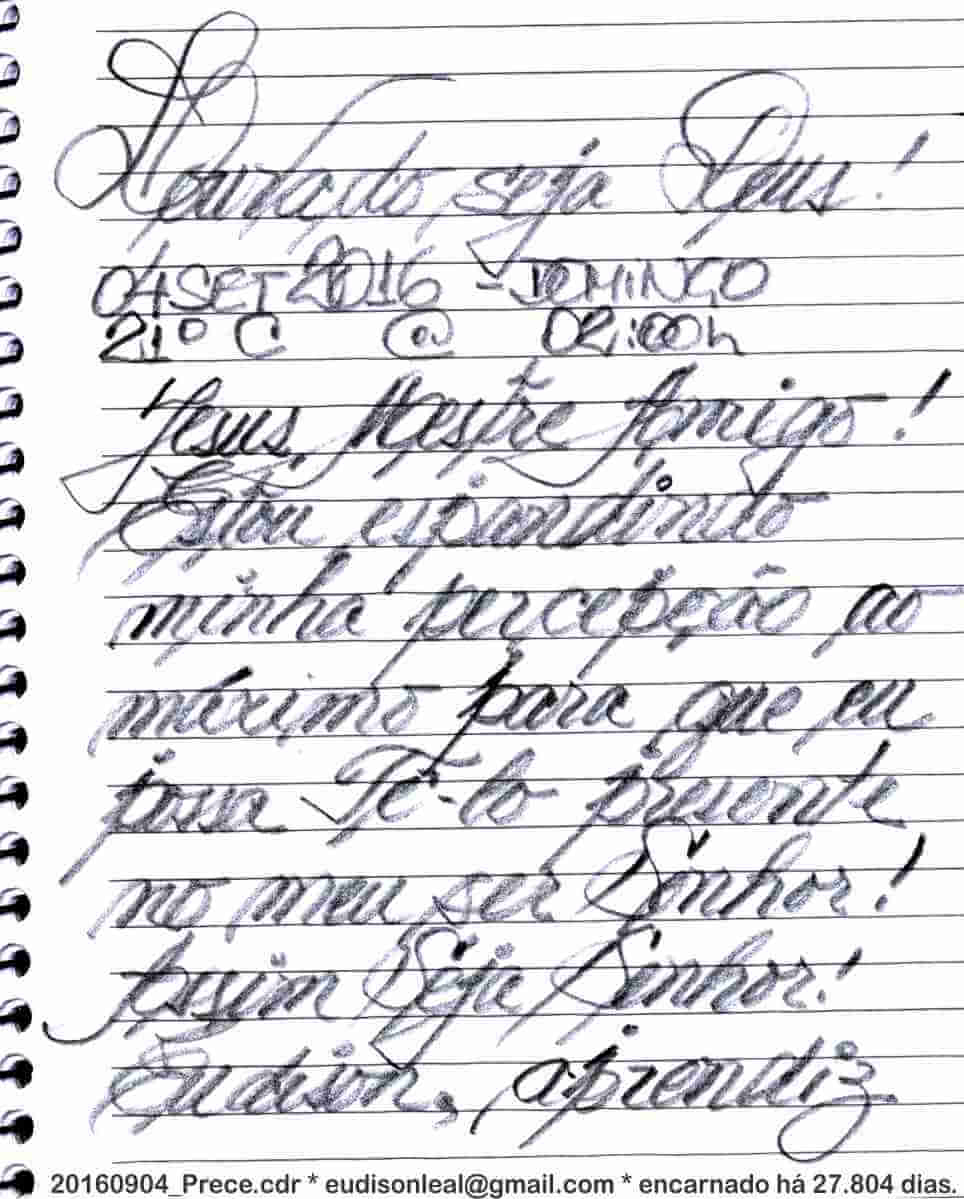 Louvado seja Deus!
04 SET 2016 - DOMINGO
21º C @ 02:00h
Jesus, Mestre Amigo!
Estou espandindo
minha percepção ao
máximo para que eu
possa Tê-lo presente
no meu ser Senhor!
Assim Seja Senhor!
Eudison, aprendiz
20160904_Prece.cdr * eudisonleal@gmail.com * encarnado há 27.804 dias.